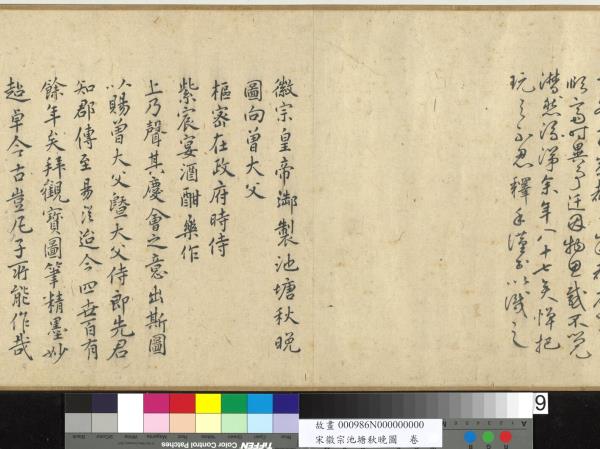 時異事迁因物思感不覺
潸然 余年八十七矣 把
玩之不忍釋手謹書以識之
徽宗皇帝御製池塘秋晚
圖向曾大父
樞密在政府時侍
紫宸宴酒酣樂作
上乃聲其慶會之意出斯圖
以賜曾大父暨大父侍郎先君
知郡傳至易 迨今四世百有
餘年矣拜觀寶圖筆精墨妙
超卓今古豈凡子所能作哉
9
TIFFEN Color Control Patches
故畫 000986N000000000
宋徽宗池塘秋晚圖 卷